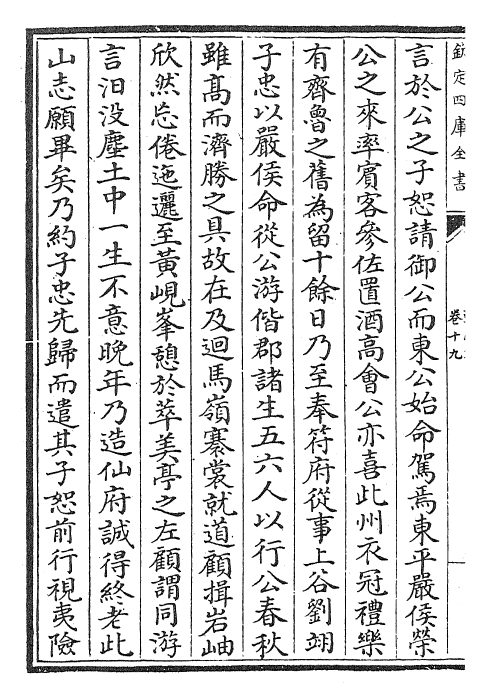 欽定四庫全書
卷十九
言於公之子恕請御公而東公始命駕焉東平嚴侯榮
公之來率賓客參佐置酒高會公亦喜此州衣冠禮樂
有齊魯之舊為留十餘日乃至奉符府從事上谷劉翊
子忠以嚴侯命從公游偕郡諸生五六人以行公春秋
雖高而濟勝之具故在及迴馬嶺褰裳就道顧揖岩岫
欣然忘倦迤邐至黃峴峯憩於萃美亭之左顧謂同游
言汨没塵土中一生不意晚年乃造仙府誠得終老此
山志願畢矣乃約子忠先歸而遣其子恕前行視夷險